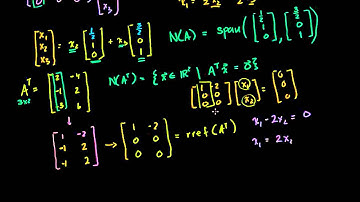 [x₁ x₂ x₃] = x₂ [1/2 1 0] + x₃ [3/2 0 1]
N(A) = span([1/2 1 0], [3/2 0 1])
Aᵀ = [2 -4
6]
3x2
N(Aᵀ) = {x⃗ ∈ ℝ² | Aᵀx⃗ = 0⃗}
[x₁ x₂] = [0 0 0]
[1 -2
-1 2
-1 2]
→ [1 -2
0 0
0 0] = rref(Aᵀ)
x₁ - 2x₂ = 0
x₁ = 2x₂